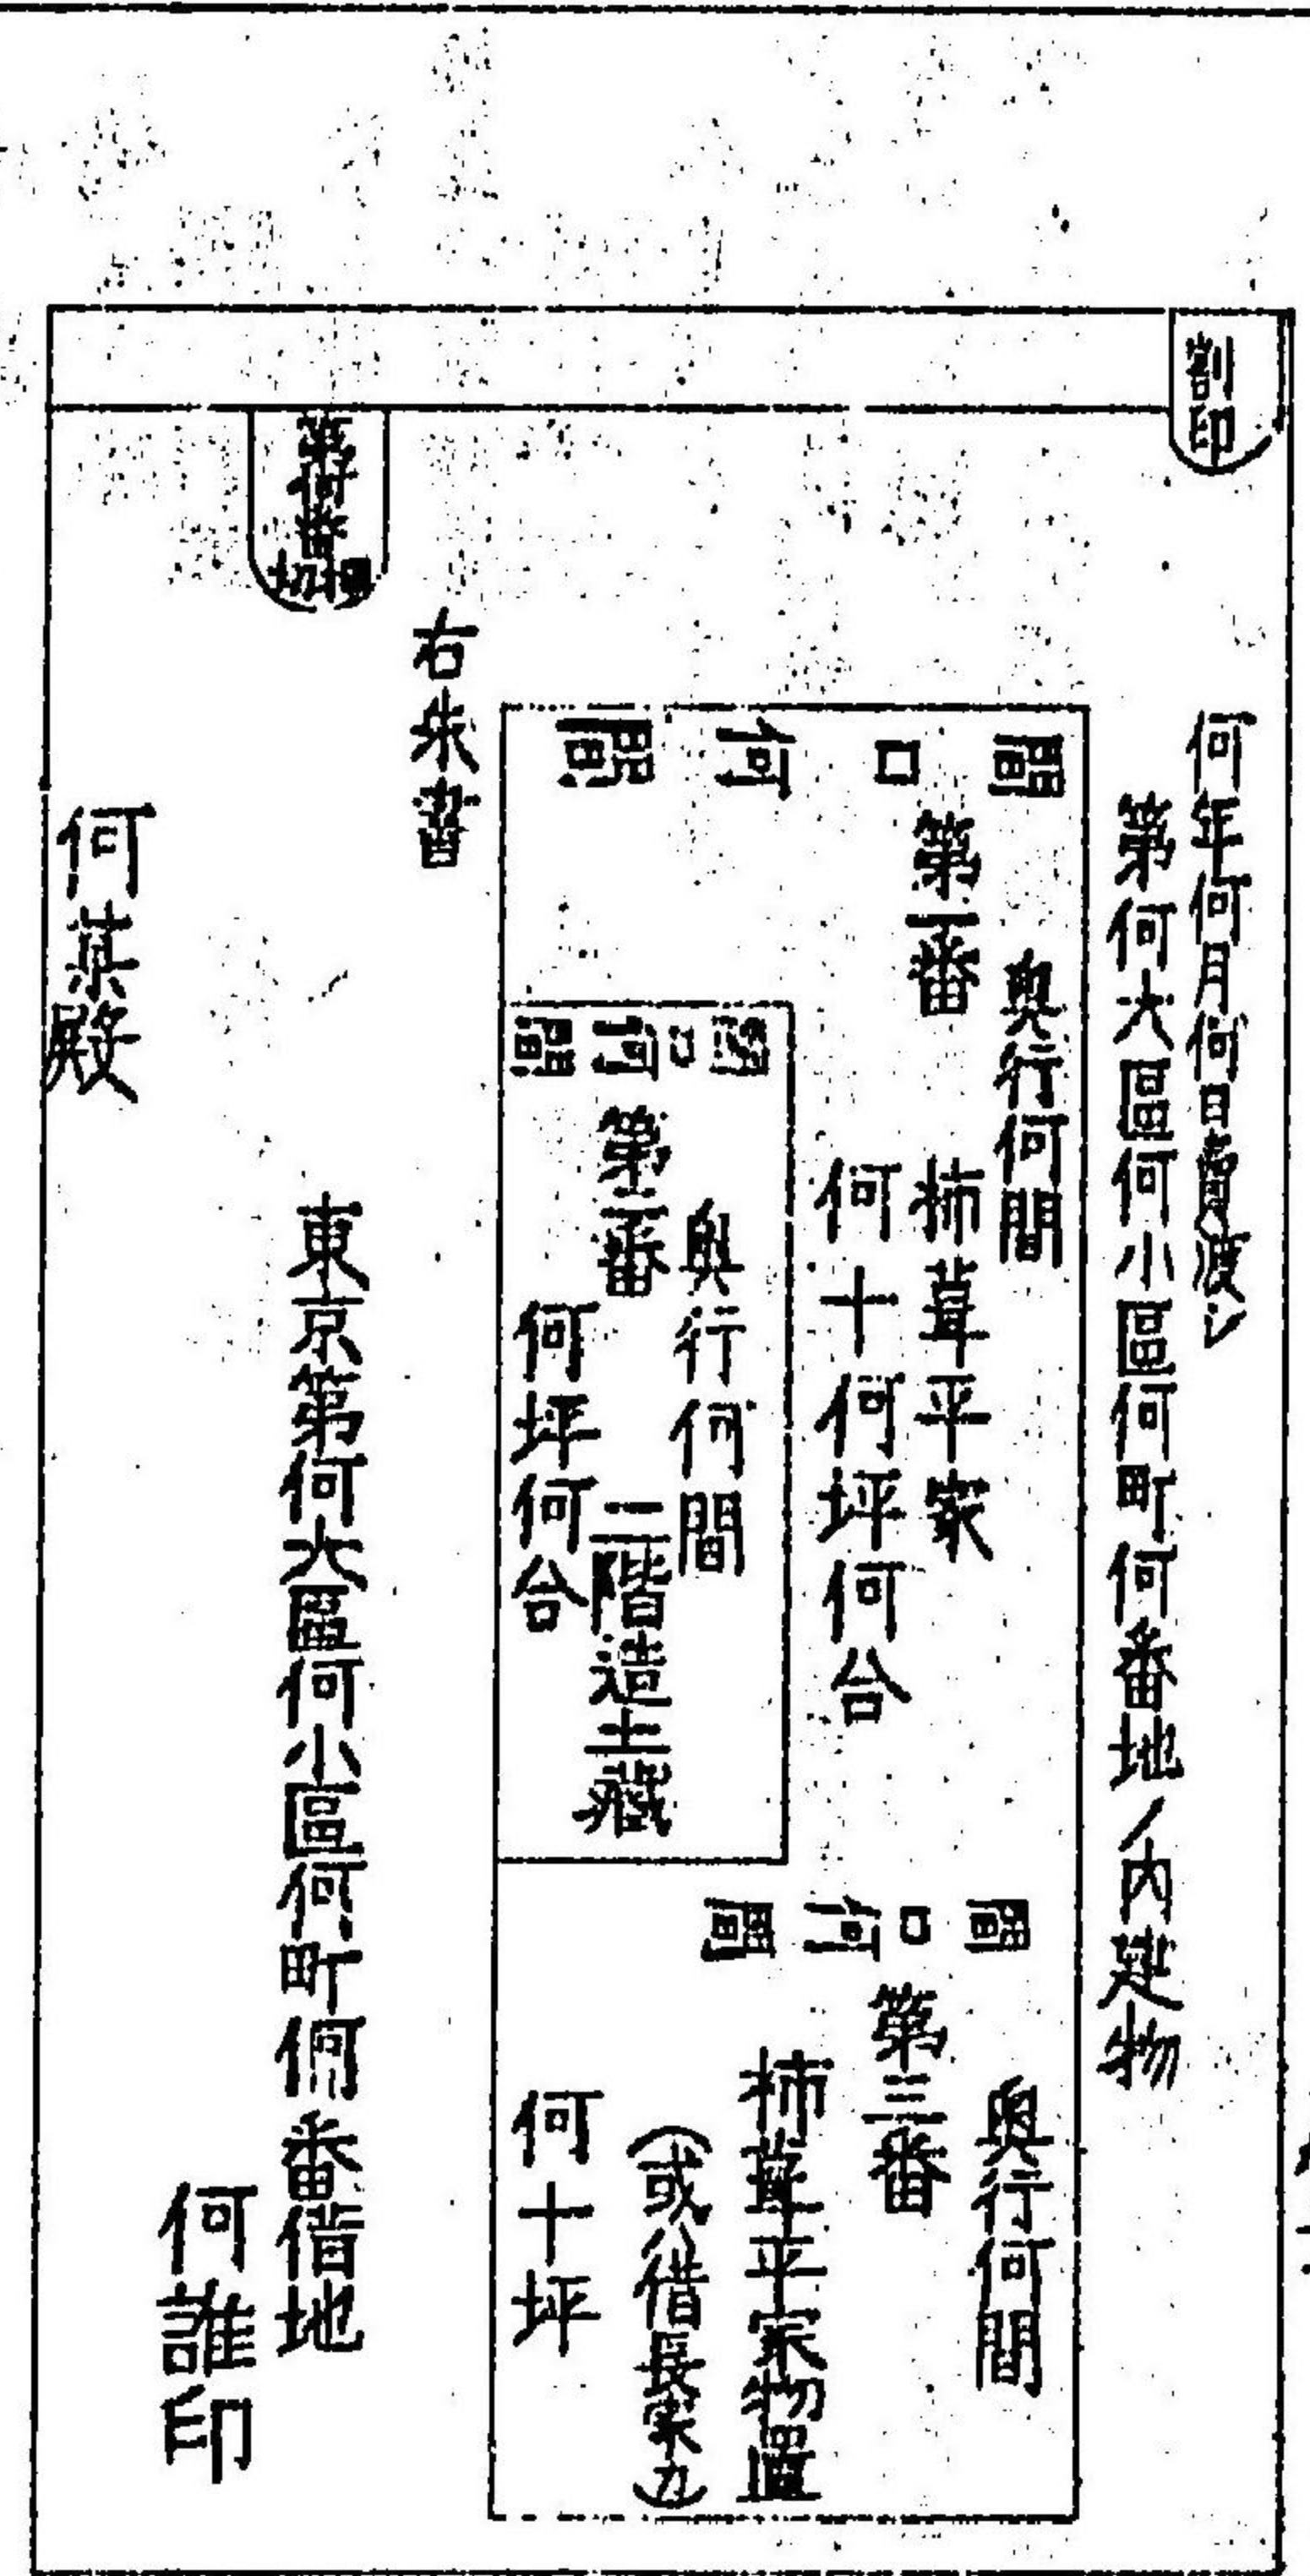 割印
何年何月何日賣渡シ
第何大區何小區何町何番地ノ内建物
間口何間
奥行何間
第一番
柿葺平家
何十何坪何合
間口何間
奥行何間
第二番
二階造土藏
何坪何合
間口何間
奥行何間
第三番
柿葺平家物置
(或ハ借長家九)
何十坪
右朱書
東京第何大區何小區何町何番借地
何誰印
何某殿